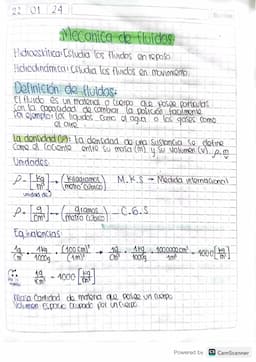 22 01 24
Mecánica de fluidos
Hidrostática: Estudia los fluidos en reposo
Hidrodinámica: Estudia los fluidos en movimiento.
Definición de fluidos:
El fluido es un material o cuerpo que posee partículas
con la capacidad de cambiar la posición facilmente
Por ejemplo: los liquidos como el agua o los gases como
el aire.
La densidad (ρ): La densidad de una sustancia se define
como el cociente entre su masa (m) y su volumen (v). ρ = m/v
Unidades
ρ = [kg/m³] → (kilogramos/metro cúbico) M.K.S → Medida internacional
ρ = [g/cm³] → (gramos) - C.G.S
Equivalencias
1g/cm³ = 1kg/1000g · (100cm)³/(1m)³ → 1g/cm³ · 1kg/1000g · 1000000cm³/1m³ = 1000 [kg/m³]
1g/cm³ = 1000 [kg/m³]
Masa: Cantidad de materia que posee un cuerpo
Volumen: Espacio ocupado por un cuerpo
Powered by CamScanner